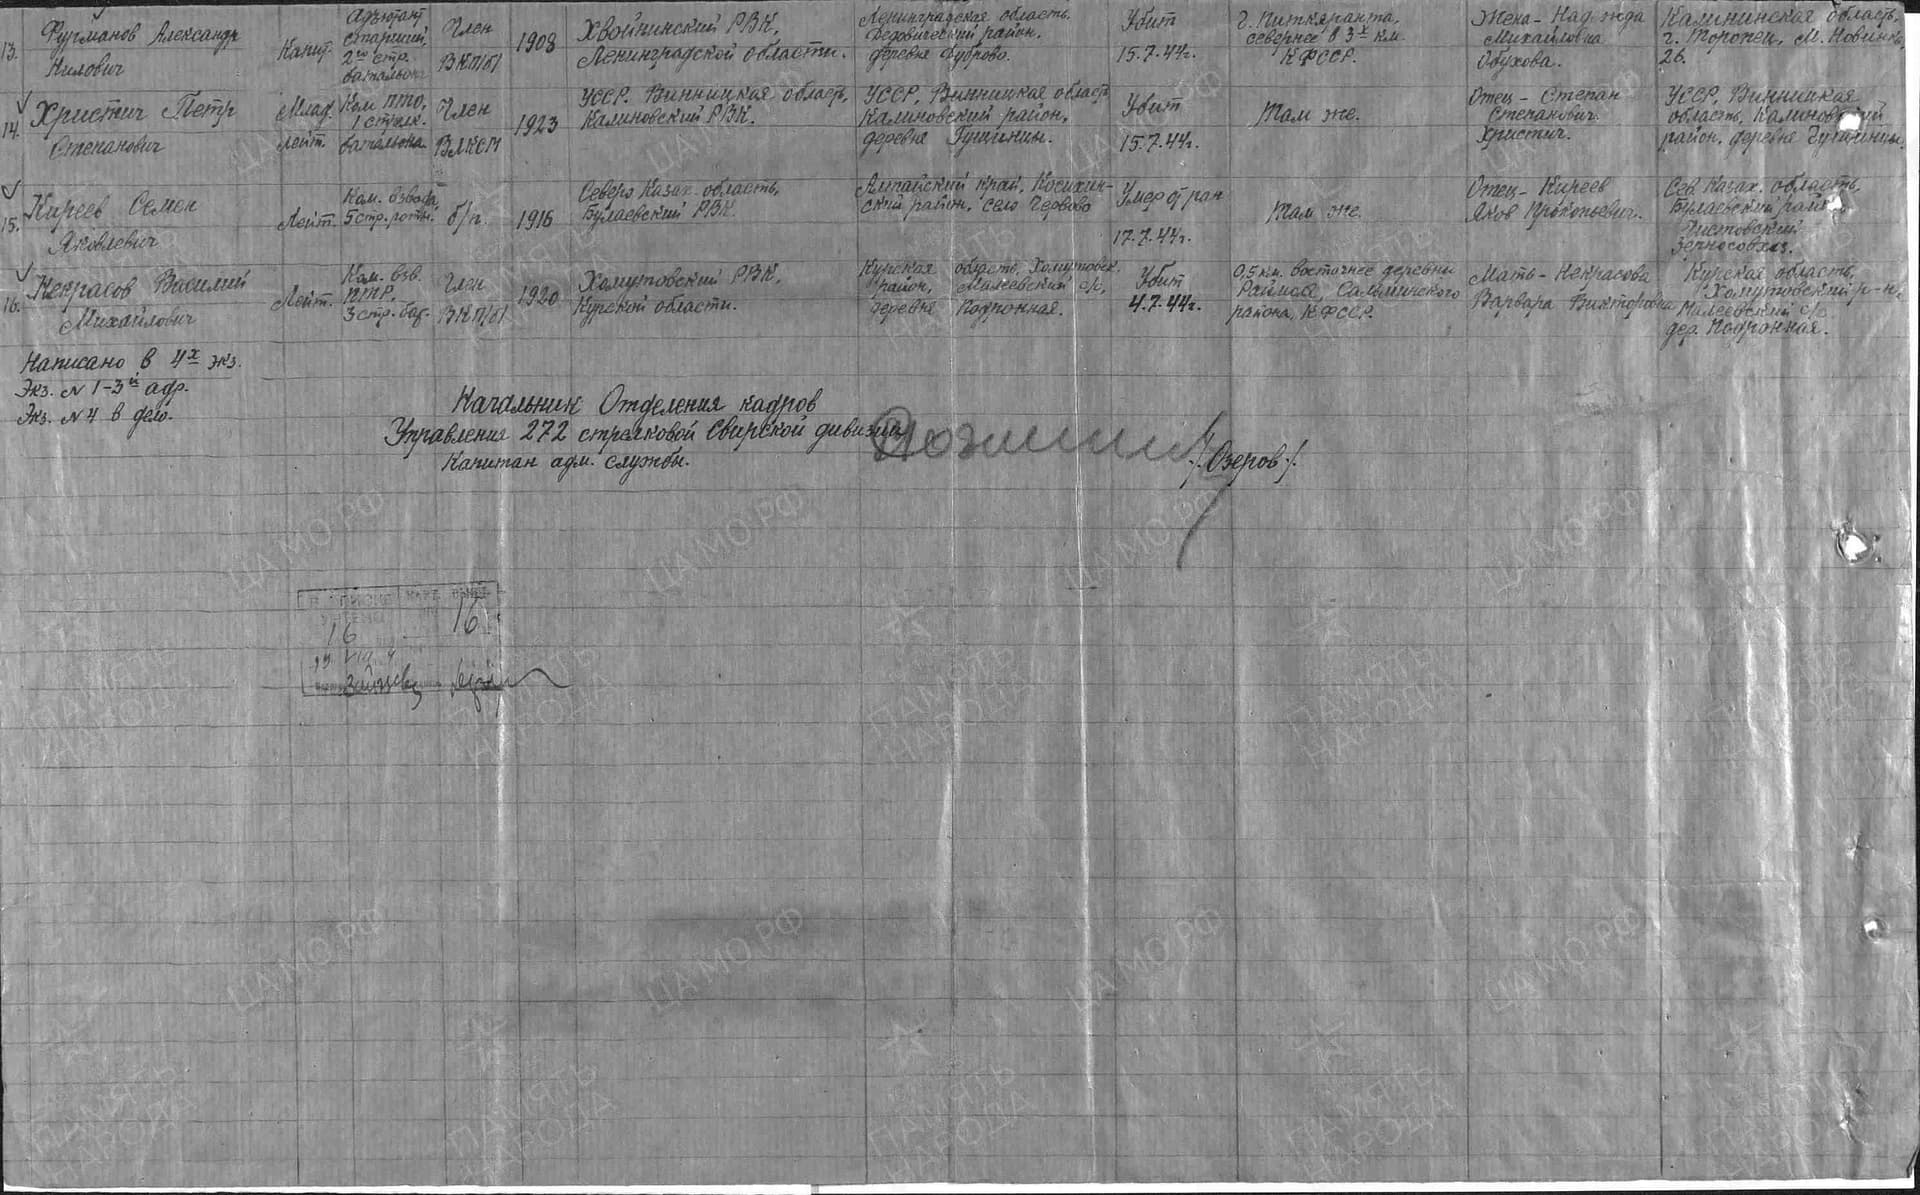 13.
Фурманов Александр
Нилович
Капит.
Адъютант
старший,
2го стр.
батальона
Член
ВКП/б/
1908
Хвойнинский РВК,
Ленинградской области.
Ленинградская область,
район,
деревня Дуброво.
Убит
15.7.44г.
г. Питкяранта,
севернее в 3х км.
КФССР.
Жена - Надежда
Михайловна
Обухова.
Калининская область,
г. Торопец, М. Новинка,
26.
14.
Христич Петр
Степанович
Млад.
Лейт.
Ком ПТО,
1 стрелк.
батальона
Член
ВЛКСМ
1923
УССР, Винницкая область,
Калиновский РВК.
УССР, Винницкая область
Калиновский район,
деревня Гущинцы.
Убит
15.7.44г.
Там же.
Отец - Степан
Степанович
Христич.
УССР, Винницкая
область, Калиновский
район, деревня Гущинцы.
15.
Киреев Семен
Яковлевич
Лейт.
Ком. взвода,
5 стр. роты.
б/п.
1916
Северо Казах. область,
Булаевский РВК.
Алтайский край, Косихин-
ский район, село Червово
Умер от ран
17.7.44г.
Там же.
Отец - Киреев
Яков Прокопьевич.
Сев. Казах. область,
Булаевский район
Чистовский
зерносовхоз.
16.
Некрасов Василий
Михайлович
Лейт.
Ком. взв.
3 стр. бат.
Член
ВКП/б/
1920
Хомутовский РВК,
Курской области.
Курская область, Хомутовск.
район, Малеевский с/с,
деревня Подронная.
Убит
4.7.44г.
0,5 км. восточнее деревни
Сальминского
района, КФССР.
Мать - Некрасова
Варвара Викторовна
Курская область,
Хомутовский р-н,
Малеевский с/с
дер. Подронная.
Написано в 4х экз.
Экз. № 1-3й адр.
Экз. № 4 в дело.
Начальник Отделения кадров
Управления 272 стрелковой Свирской дивизии
Капитан адм. службы.
/Озеров/.
16
16
ЦАМО.РФ
ПАМЯТЬ
НАРОДА